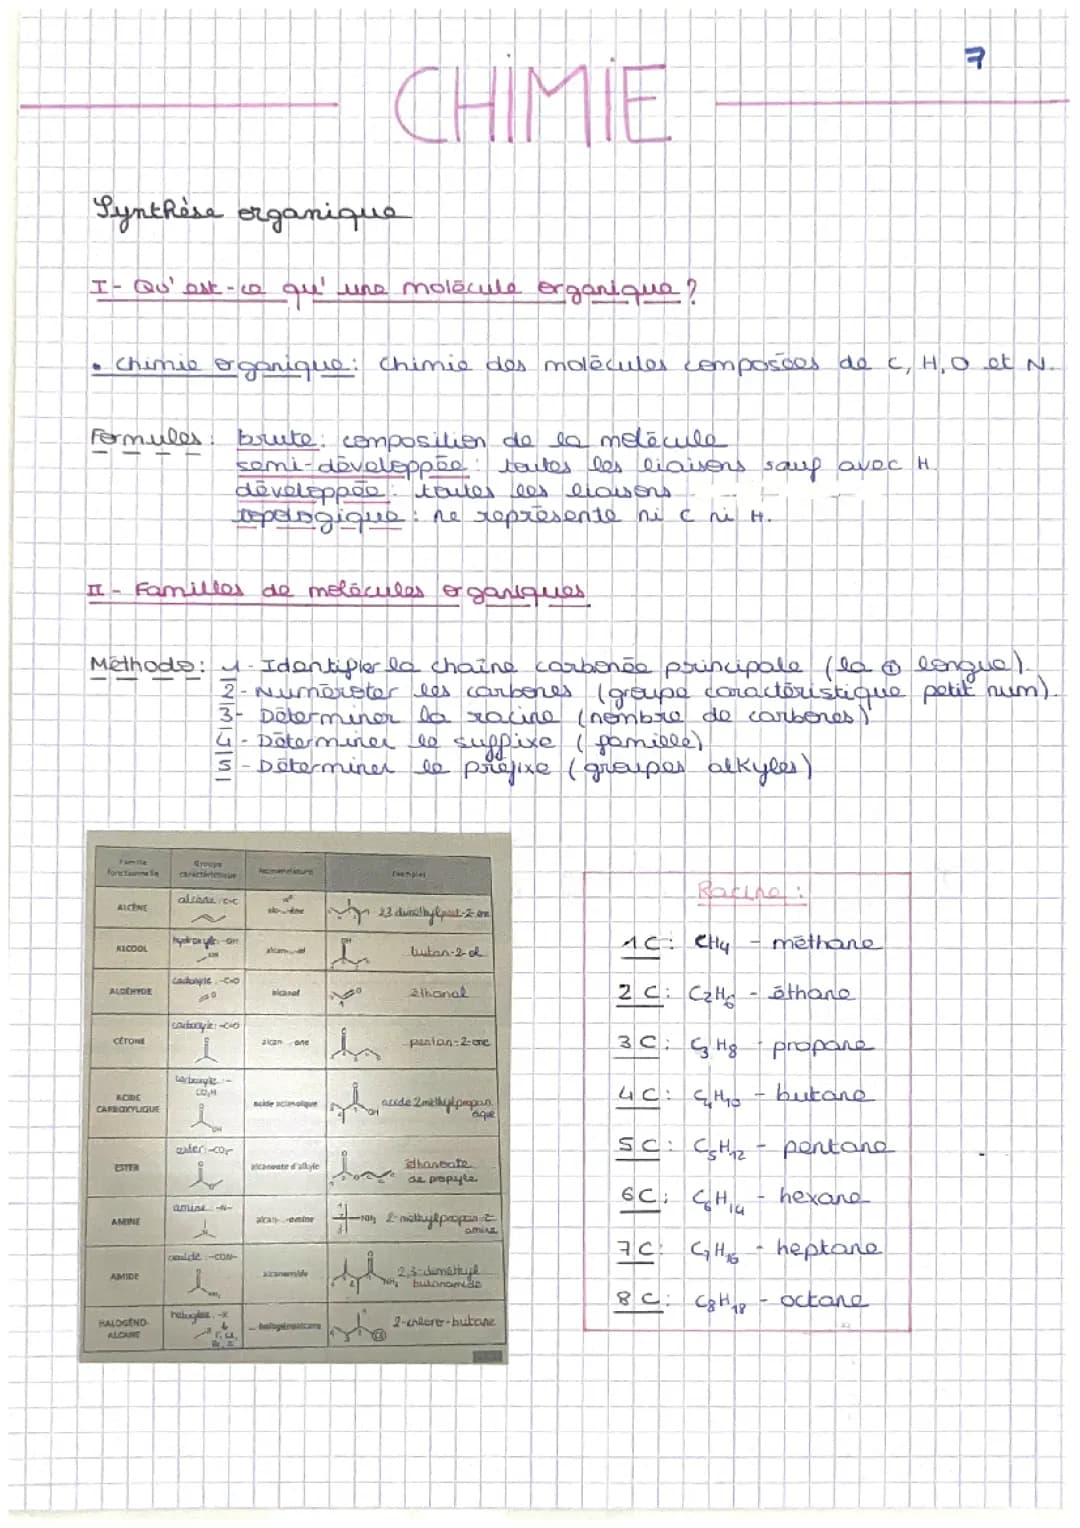 7
CHIMIE
Synthèse organique
I- Qu'est-ce qu'une molécule organique?
• Chimie organique: Chimie des molécules composées de C, H, O et N.
Formules: brute: composition de la molécule
semi-développée: toutes les liaisons sauf avec H.
développée: toutes les liaisons
topologique: ne représente ni C ni H.
II- Familles de molécules organiques
Méthode: 1- Identifier la chaîne carbonée principale (la ⊕ longue).
2- Numéroter les carbones (groupe caractéristique petit num).
3- Déterminer la racine (nombre de carbones)
4- Déterminer le suffixe (famille)
5- Déterminer le préfixe (groupes alkyles)
Famille fonctionnelle Groupe caractéristique Nomenclature Exemples
ALCÈNE C=C
ALCOOL -OH butan-2-ol
ALDÉHYDE -C=O alcanal éthanal
CÉTONE -C=O alcan one pentan-2-one
ACIDE CARBOXYLIQUE CO₂H acide
ESTER ester: -CO₂- alcanoate d'alkyle éthanoate de propyle
AMINE amine: -N- 2-méthylpropan-2-amine
AMIDE -CON- alcanamide 2,3-diméthyl butanamide
HALOGÉNO-ALCANE -X 2-chloro-butane
Racine:
1C: CH4 - méthane
2C: C2H6 - éthane
3C: C3H8 - propane
4C: C4H10 - butane
5C: C5H12 - pentane
6C: C6H14 - hexane
7C: C7H16 - heptane
8C: C8H18 - octane